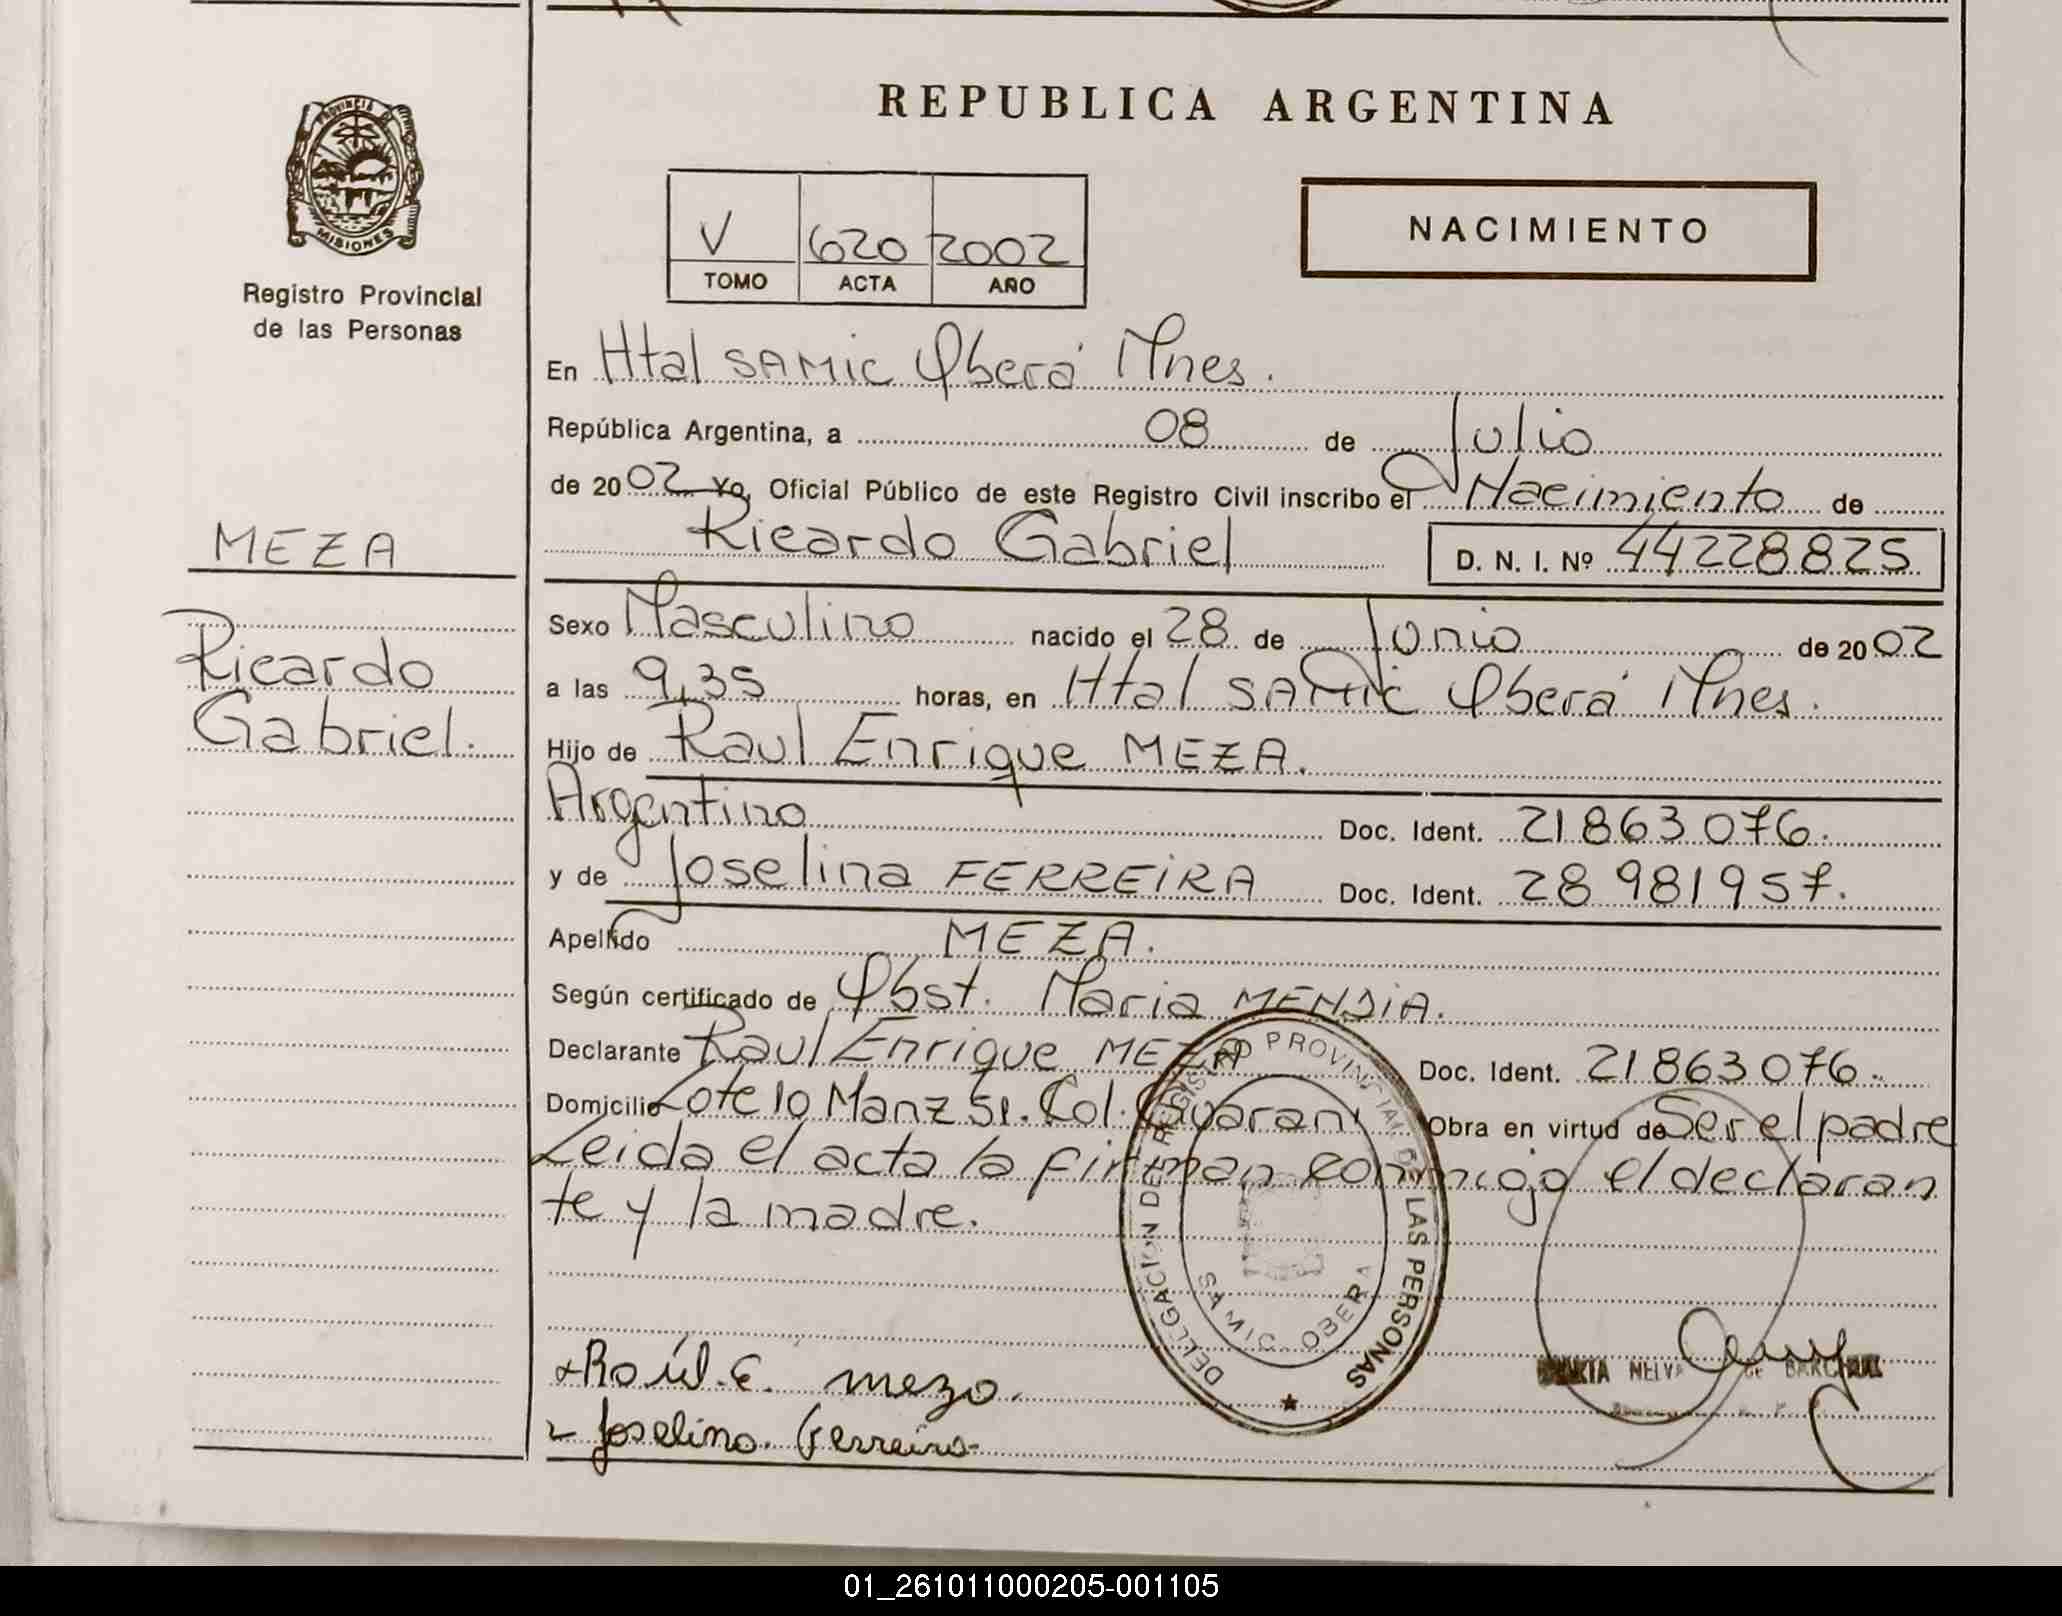 REPUBLICA ARGENTINA
PROVINCIA DE
MISIONES
Registro Provincial
de las Personas
V 620 2002
TOMO ACTA AÑO
NACIMIENTO
En Htal SAMIC Oberá Mnes.
República Argentina, a 08 de Julio
de 2002 Yo, Oficial Público de este Registro Civil inscribo el Nacimiento de
Ricardo Gabriel D. N. I. Nº 44228825
MEZA
Ricardo
Gabriel.
Sexo Masculino nacido el 28 de Junio de 2002
a las 9,35 horas, en Htal SAMIC Oberá Mnes.
Hijo de Raul Enrique MEZA.
Argentino Doc. Ident. 21863076.
y de Joselina FERREIRA Doc. Ident. 28981957.
Apellido MEZA.
Según certificado de Obst. Maria MENDIA.
Declarante Raul Enrique MEZA Doc. Ident. 21863076.
Domicilio Lote 10 Manz 51. Col. Guarani Obra en virtud de Ser el padre
Leida el acta la firman conmigo el declaran
te y la madre.
DELEGACION DE REGISTRO PROVINCIAL DE LAS PERSONAS
SAMIC OBERA
Raúl. E. meza.
Joselina. Ferreira
NELVA DE
01_261011000205-001105